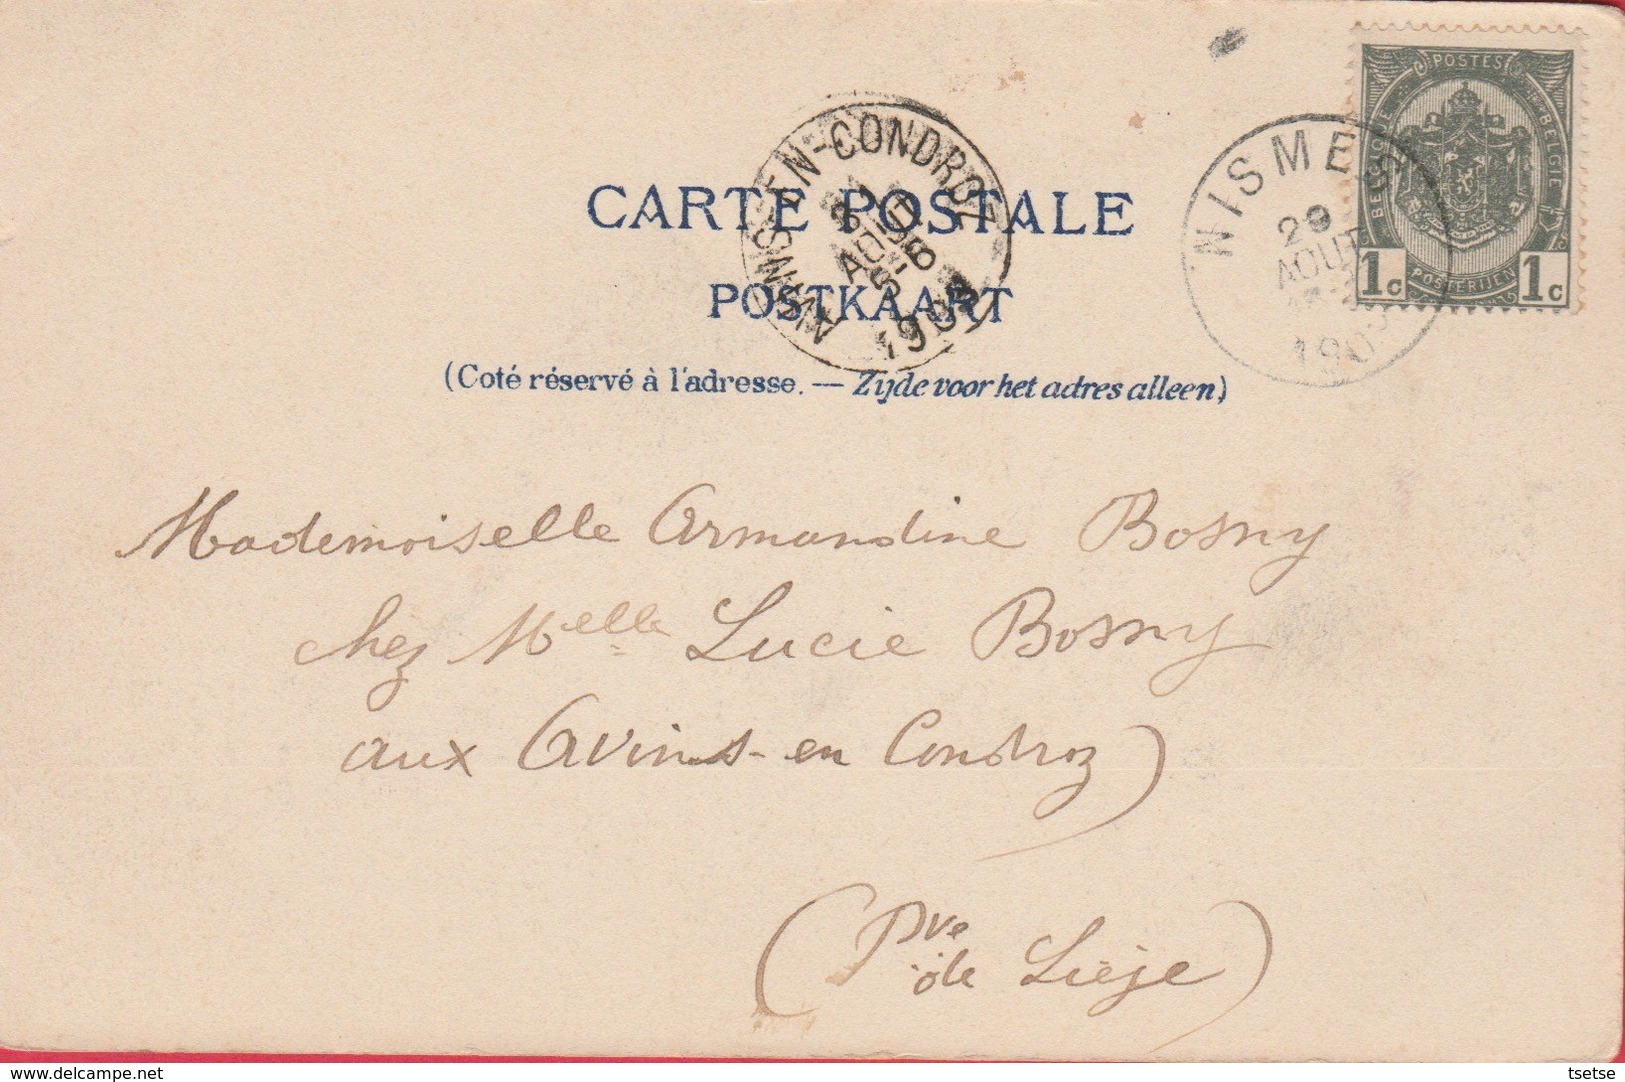 POSTES
BELGIQUE
BELGIË
POSTERIJEN
1c
1c
NISMES
29
AOUT
-EN-CONDROZ
AOUT
5-6
CARTE POSTALE
POSTKAART
(Coté réservé à l'adresse. — Zijde voor het adres alleen)
Mademoiselle Armandine Bosny
chez Melle Lucie Bosny
aux Avins-en Condroz
(Pve de Liège)
delcampe.net
tsetse